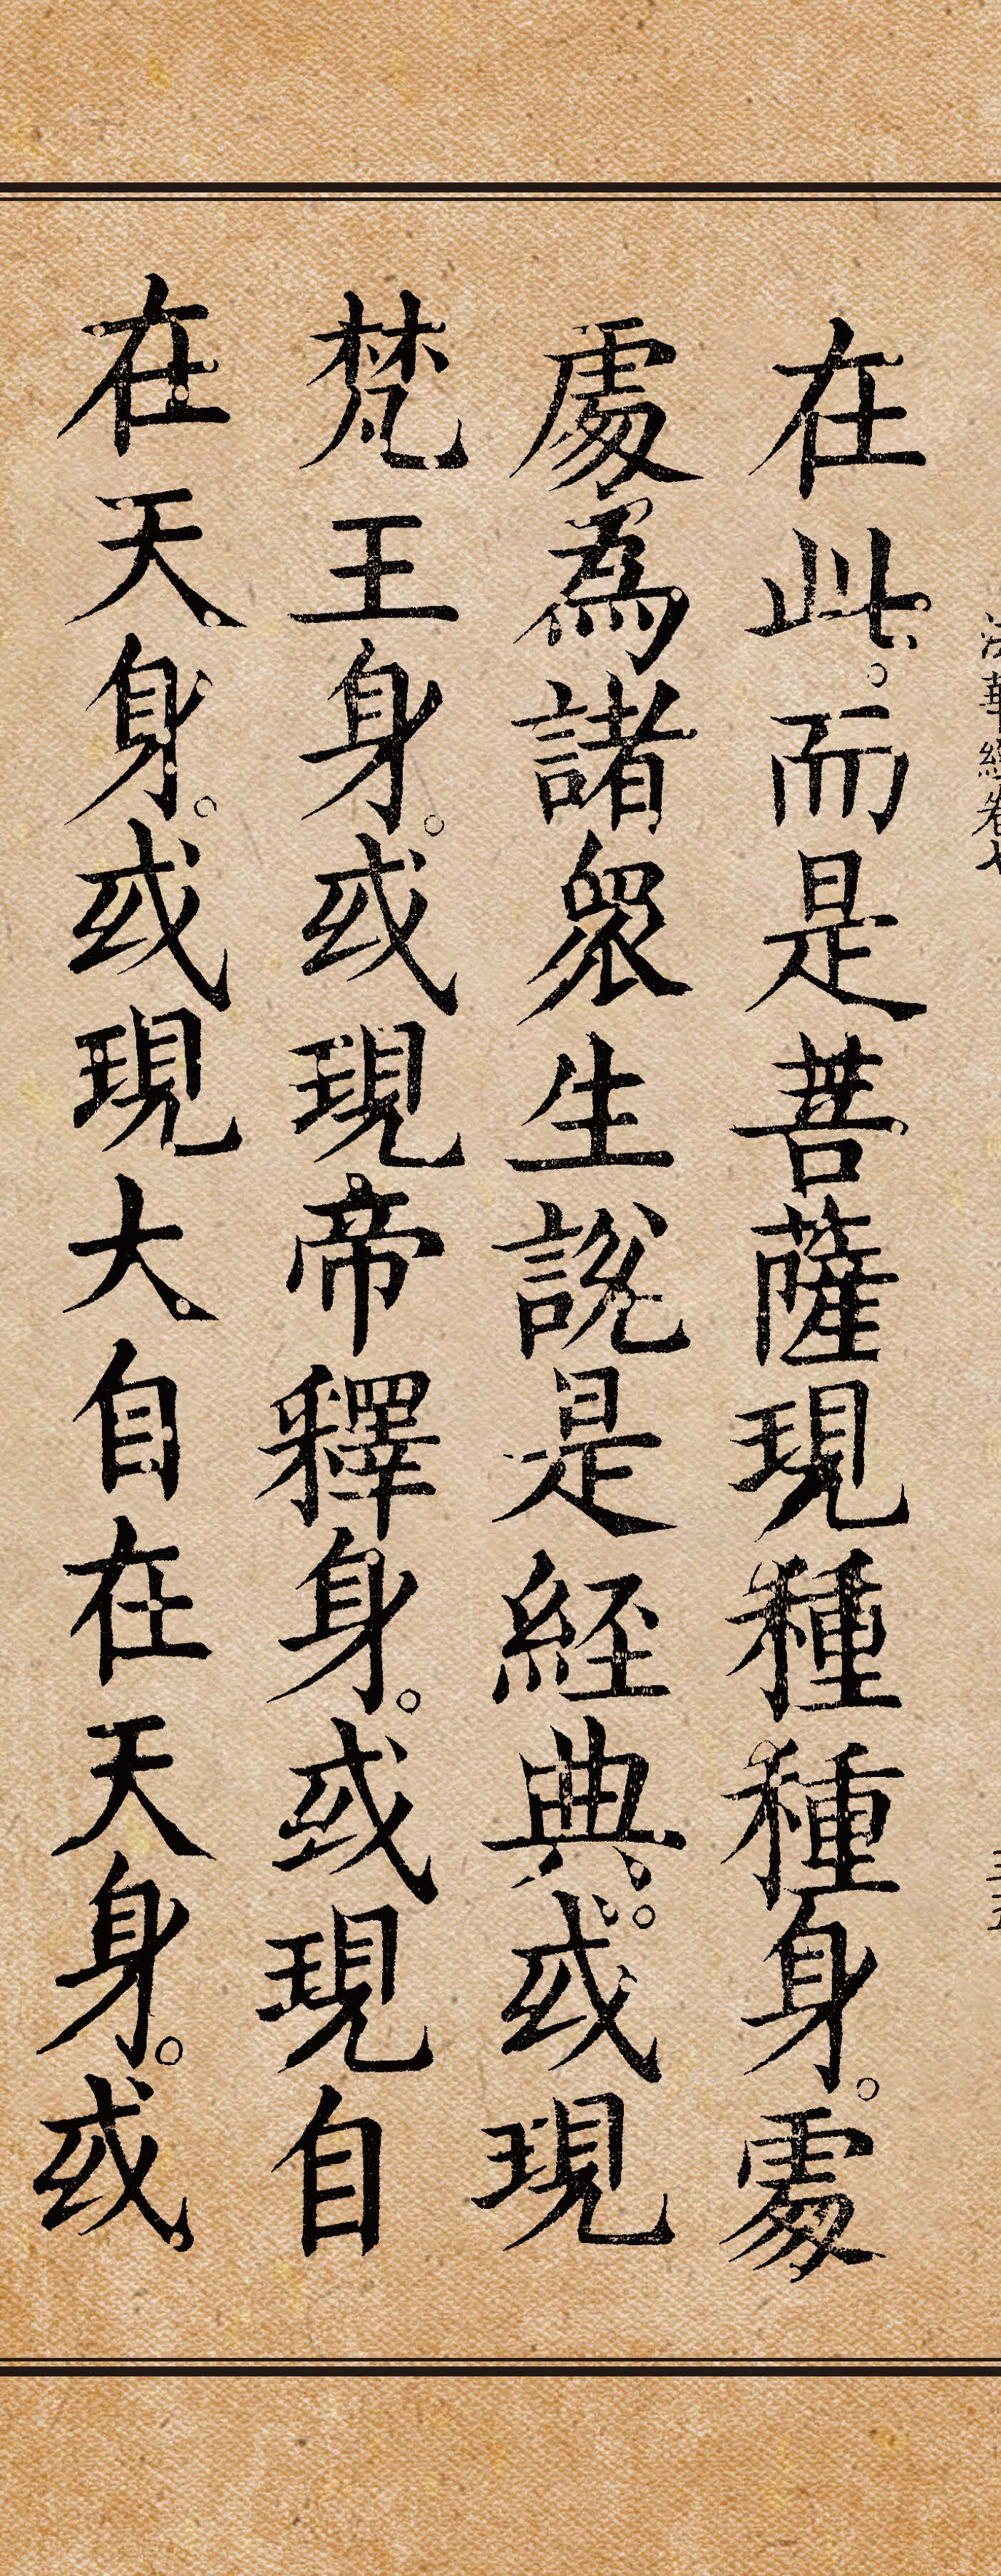 法華經卷七
在此。而是菩薩現種種身。處
處為諸眾生說是經典。或現
梵王身。或現帝釋身。或現自
在天身。或現大自在天身。或